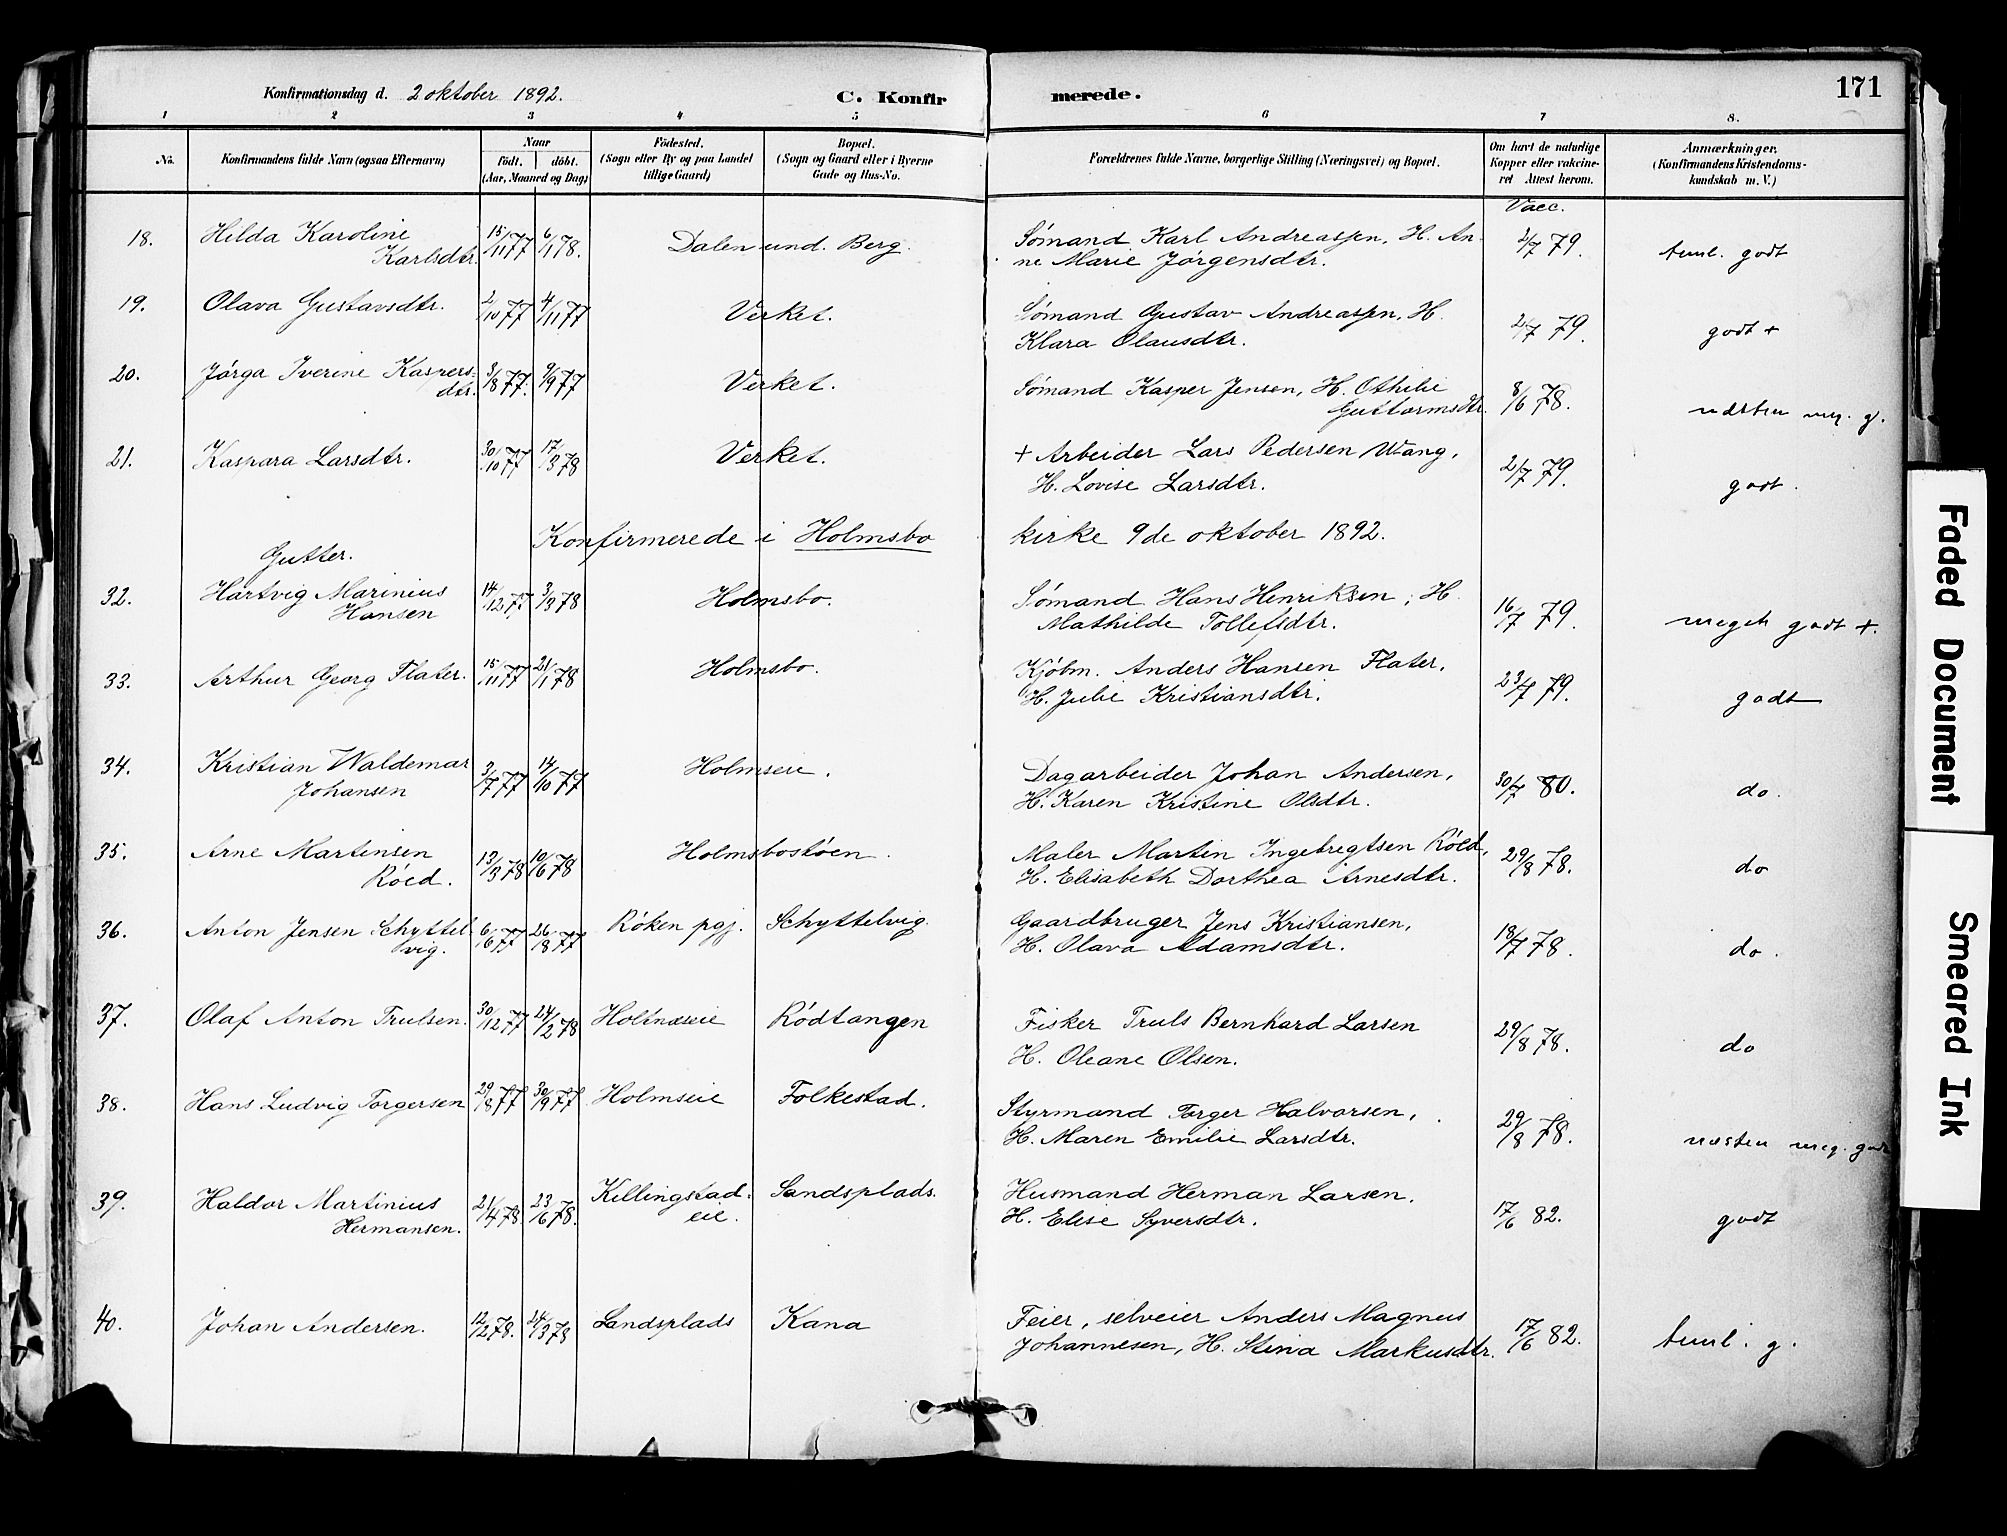 Konfirmationsdag d. 2 oktober 1892. C. Konfir merede. 171
1 2 3 4 5 6 7 8.
No. Konfirmandens fulde Navn (ogsaa Efternavn) Naar født. døbt. (Aar, Maaned og Dag) Fødested. (Sogn eller By og paa Landet tillige Gaard) Bopæl. (Sogn og Gaard eller i Byerne Gade og Hus-No. Forældrenes fulde Navne, borgerlige Stilling (Næringsvei) og Bopæl. Om havt de naturlige Kopper eller vakcineret Attest herom. Anmærkninger, (Konfirmandens Kristendomskundskab m. V.)
Vacc.
18. Hilda Karoline 15/11 77 6/1 78. Dalen und. Berg. Sømand Karl Andreassen, H. An- 2/7 79. teml. godt
Karlsdtr. ne Marie Jørgensdtr.
19. Olava Gustavsdtr. 2/10 77 4/11 77 Verket. Sømand Gustav Andreassen, H. 2/7 79. godt +
Klara Olausdtr.
20. Jørga Iverine Kaspers- 3/8 77. 9/9 77 Verket. Sømand Kasper Jensen, H. Othilie 8/6 78. næsten meg. g.
dtr. Guttormsdtr.
21. Kaspara Larsdtr. 30/10 77 17/3 78 Verket. + Arbeider Lars Pedersen Wang, 2/7 79. godt.
H. Lovise Larsdtr.
Konfirmerede i Holmsbo kirke 9de oktober 1892.
Gutter.
32. Hartvig Marinius 14/12 77 3/3 78 Holmsbo. Sømand Hans Henriksen, H. 16/7 79. meget godt +.
Hansen Mathilde Tollefsdtr.
33. Arthur Georg Flater. 15/11 77 21/1 78 Holmsbo. Kjøbm. Anders Hansen Flater, 23/7 79. godt
H. Julie Kristiansdtr.
34. Kristian Waldemar 3/7 77 14/10 77 Holmseie. Dagarbeider Johan Andersen, 30/7 80. do.
Johansen H. Karen Kristine Olsdtr.
35. Arne Martinsen 13/3 78 10/6 78 Holmsbostøen. Maler Martin Ingebregtsen Røed, 29/8 78. do
Røed. H. Elisabeth Dorthea Arnesdtr.
36. Anton Jensen Schyttel- 6/6 77 26/8 77 Røken pgj. Schyttelvig. Gaardbruger Jens Kristiansen, 18/7 78. do.
vig. H. Olava Adamsdtr.
37. Olaf Anton Trulsen. 30/12 77 24/2 78 Holtnæseie Rødtangen Fisker Truls Bernhard Larsen 29/8 78. do
H. Oleane Olsen.
38. Hans Ludvig Torgersen 29/8 77 30/9 77 Holmseie Folkestad. Styrmand Torger Halvorsen, 29/8 78. næsten meg. godt
H. Maren Emilie Larsdtr.
39. Haldor Martinius 21/4 78. 23/6 78. Killingstad- Sandsplads. Husmand Herman Larsen, 17/6 82. godt
Hermansen. eie. H. Elise Syversdtr.
40. Johan Andersen. 12/2 78. 24/3 78 Sandsplads Kana Feier, selveier Anders Magnus 17/6 82. teml. g.
Johannesen, H. Stina Markusdtr.
Faded Document
Smeared Ink